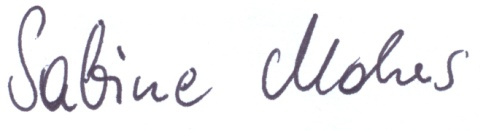 Sabine Mohns